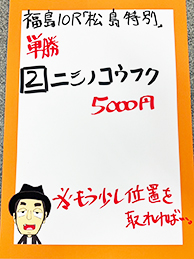 福島10R「松島特別」
単勝
2 ニシノコウフク
5000円
※もう少し位置を
取れれば…